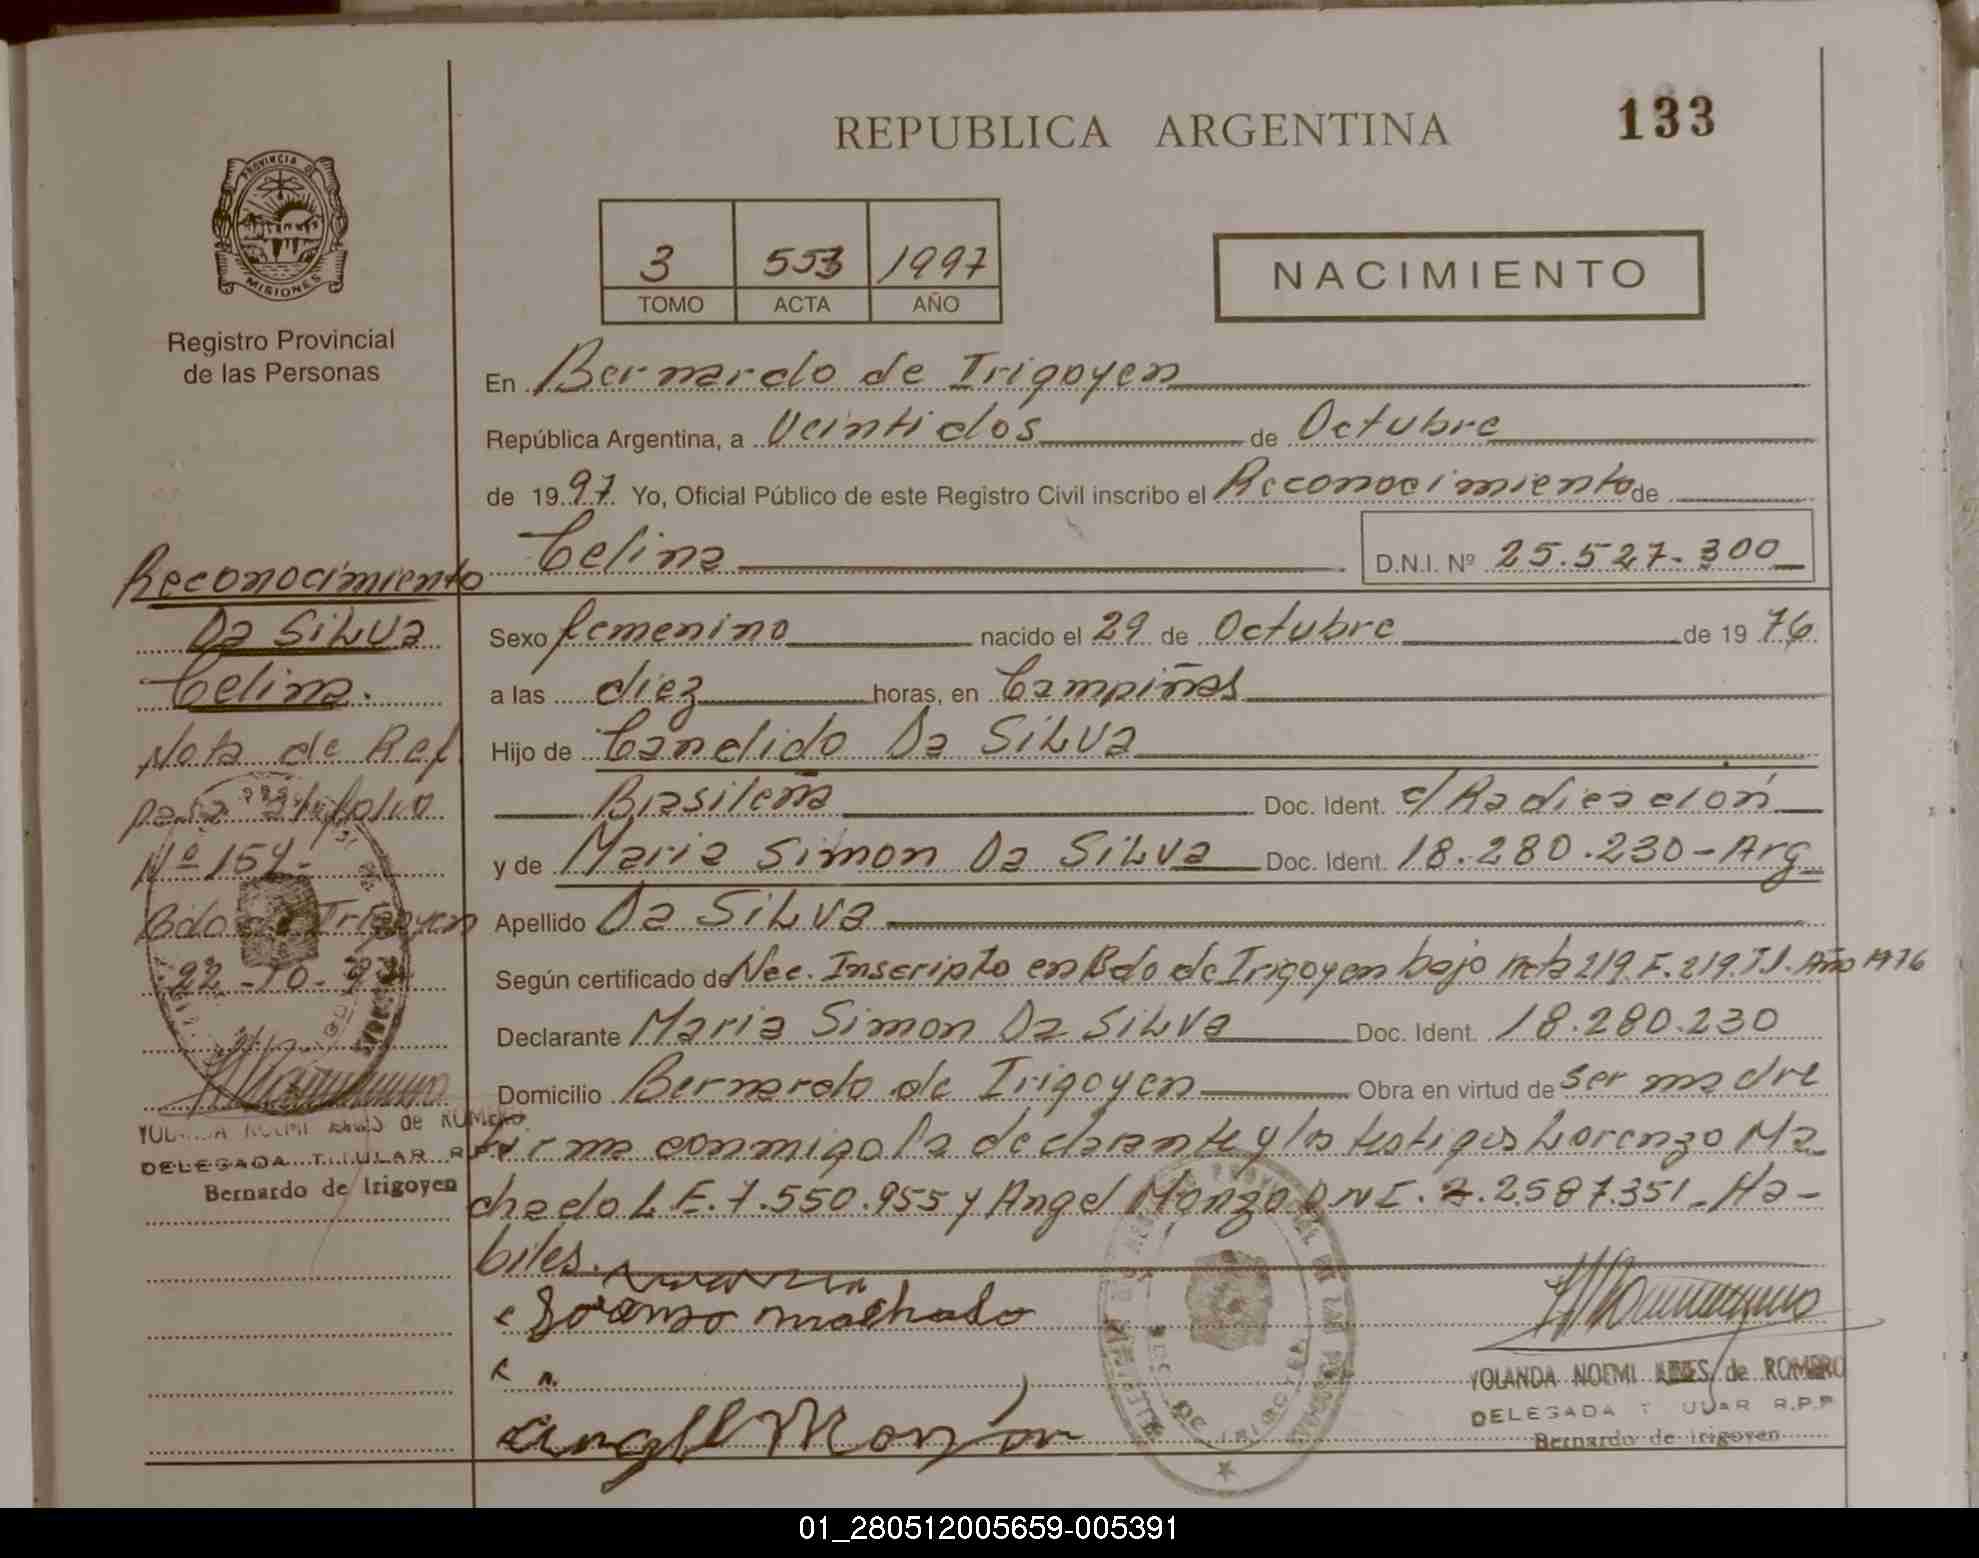 REPUBLICA ARGENTINA
133
PROVINCIA DE
MISIONES
Registro Provincial
de las Personas
3 553 1997
TOMO ACTA AÑO
NACIMIENTO
En Bernardo de Irigoyen
República Argentina, a Veintidos de Octubre
de 1997 Yo, Oficial Público de este Registro Civil inscribo el Reconocimiento de
Celina D.N.I. Nº 25.527.300
Sexo femenino nacido el 29 de Octubre de 1976
a las diez horas, en Campiñas
Hijo de Candido Da SiLva
Brasileña Doc. Ident. c/Radicación
y de Maria Simon Da SiLva Doc. Ident. 18.280.230-Arg
Apellido Da SiLva
Según certificado de Nac. Inscripto en Bdo de Irigoyen bajo Acta 219.F.219.T.1. Año 1976
Declarante Maria Simon Da SiLva Doc. Ident. 18.280.230
Domicilio Bernardo de Irigoyen Obra en virtud de ser madre
firma conmigo la declarante y los testigos Lorenzo Ma
chado L.E.7.550.955 y Angel Monzo D.N.I. 2.2587.351-Ha-
biles.
Reconocimiento
Da SiLva
Celina.
Nota de Ref
para al folio
Nº 154-
Bdo de Irigoyen
22-10-97
YOLANDA NOEMI de ROMERO
DELEGADA TITULAR R.P.P
Bernardo de Irigoyen
Lorenzo machado
angel Monzon
YOLANDA NOEMI de ROMERO
DELEGADA TITULAR R.P.P
Bernardo de Irigoyen
01_280512005659-005391